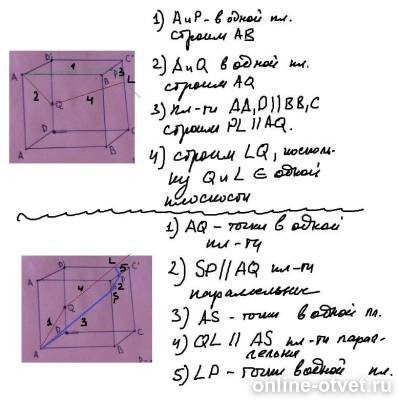 1) A и P - в одной пл.
строим AB
2) A и Q в одной пл.
строим AQ
3) пл-ти AA₁D || BB₁C
строим PL || AQ.
4) строим LQ, посколь
ку Q и L ∈ одной
плоскости
1) AQ - точки в одной
пл-ти
2) SP || AQ пл-ти
параллельны
3) AS - точки в одной пл.
4) QL || AS пл-ти парал-
лельны
5) LP - точки в одной пл.
A D C' B P L Q D C A B
1 2 3 4
D L C' P S Q D C A B
1 2 3 4 5
online-otvet.ru